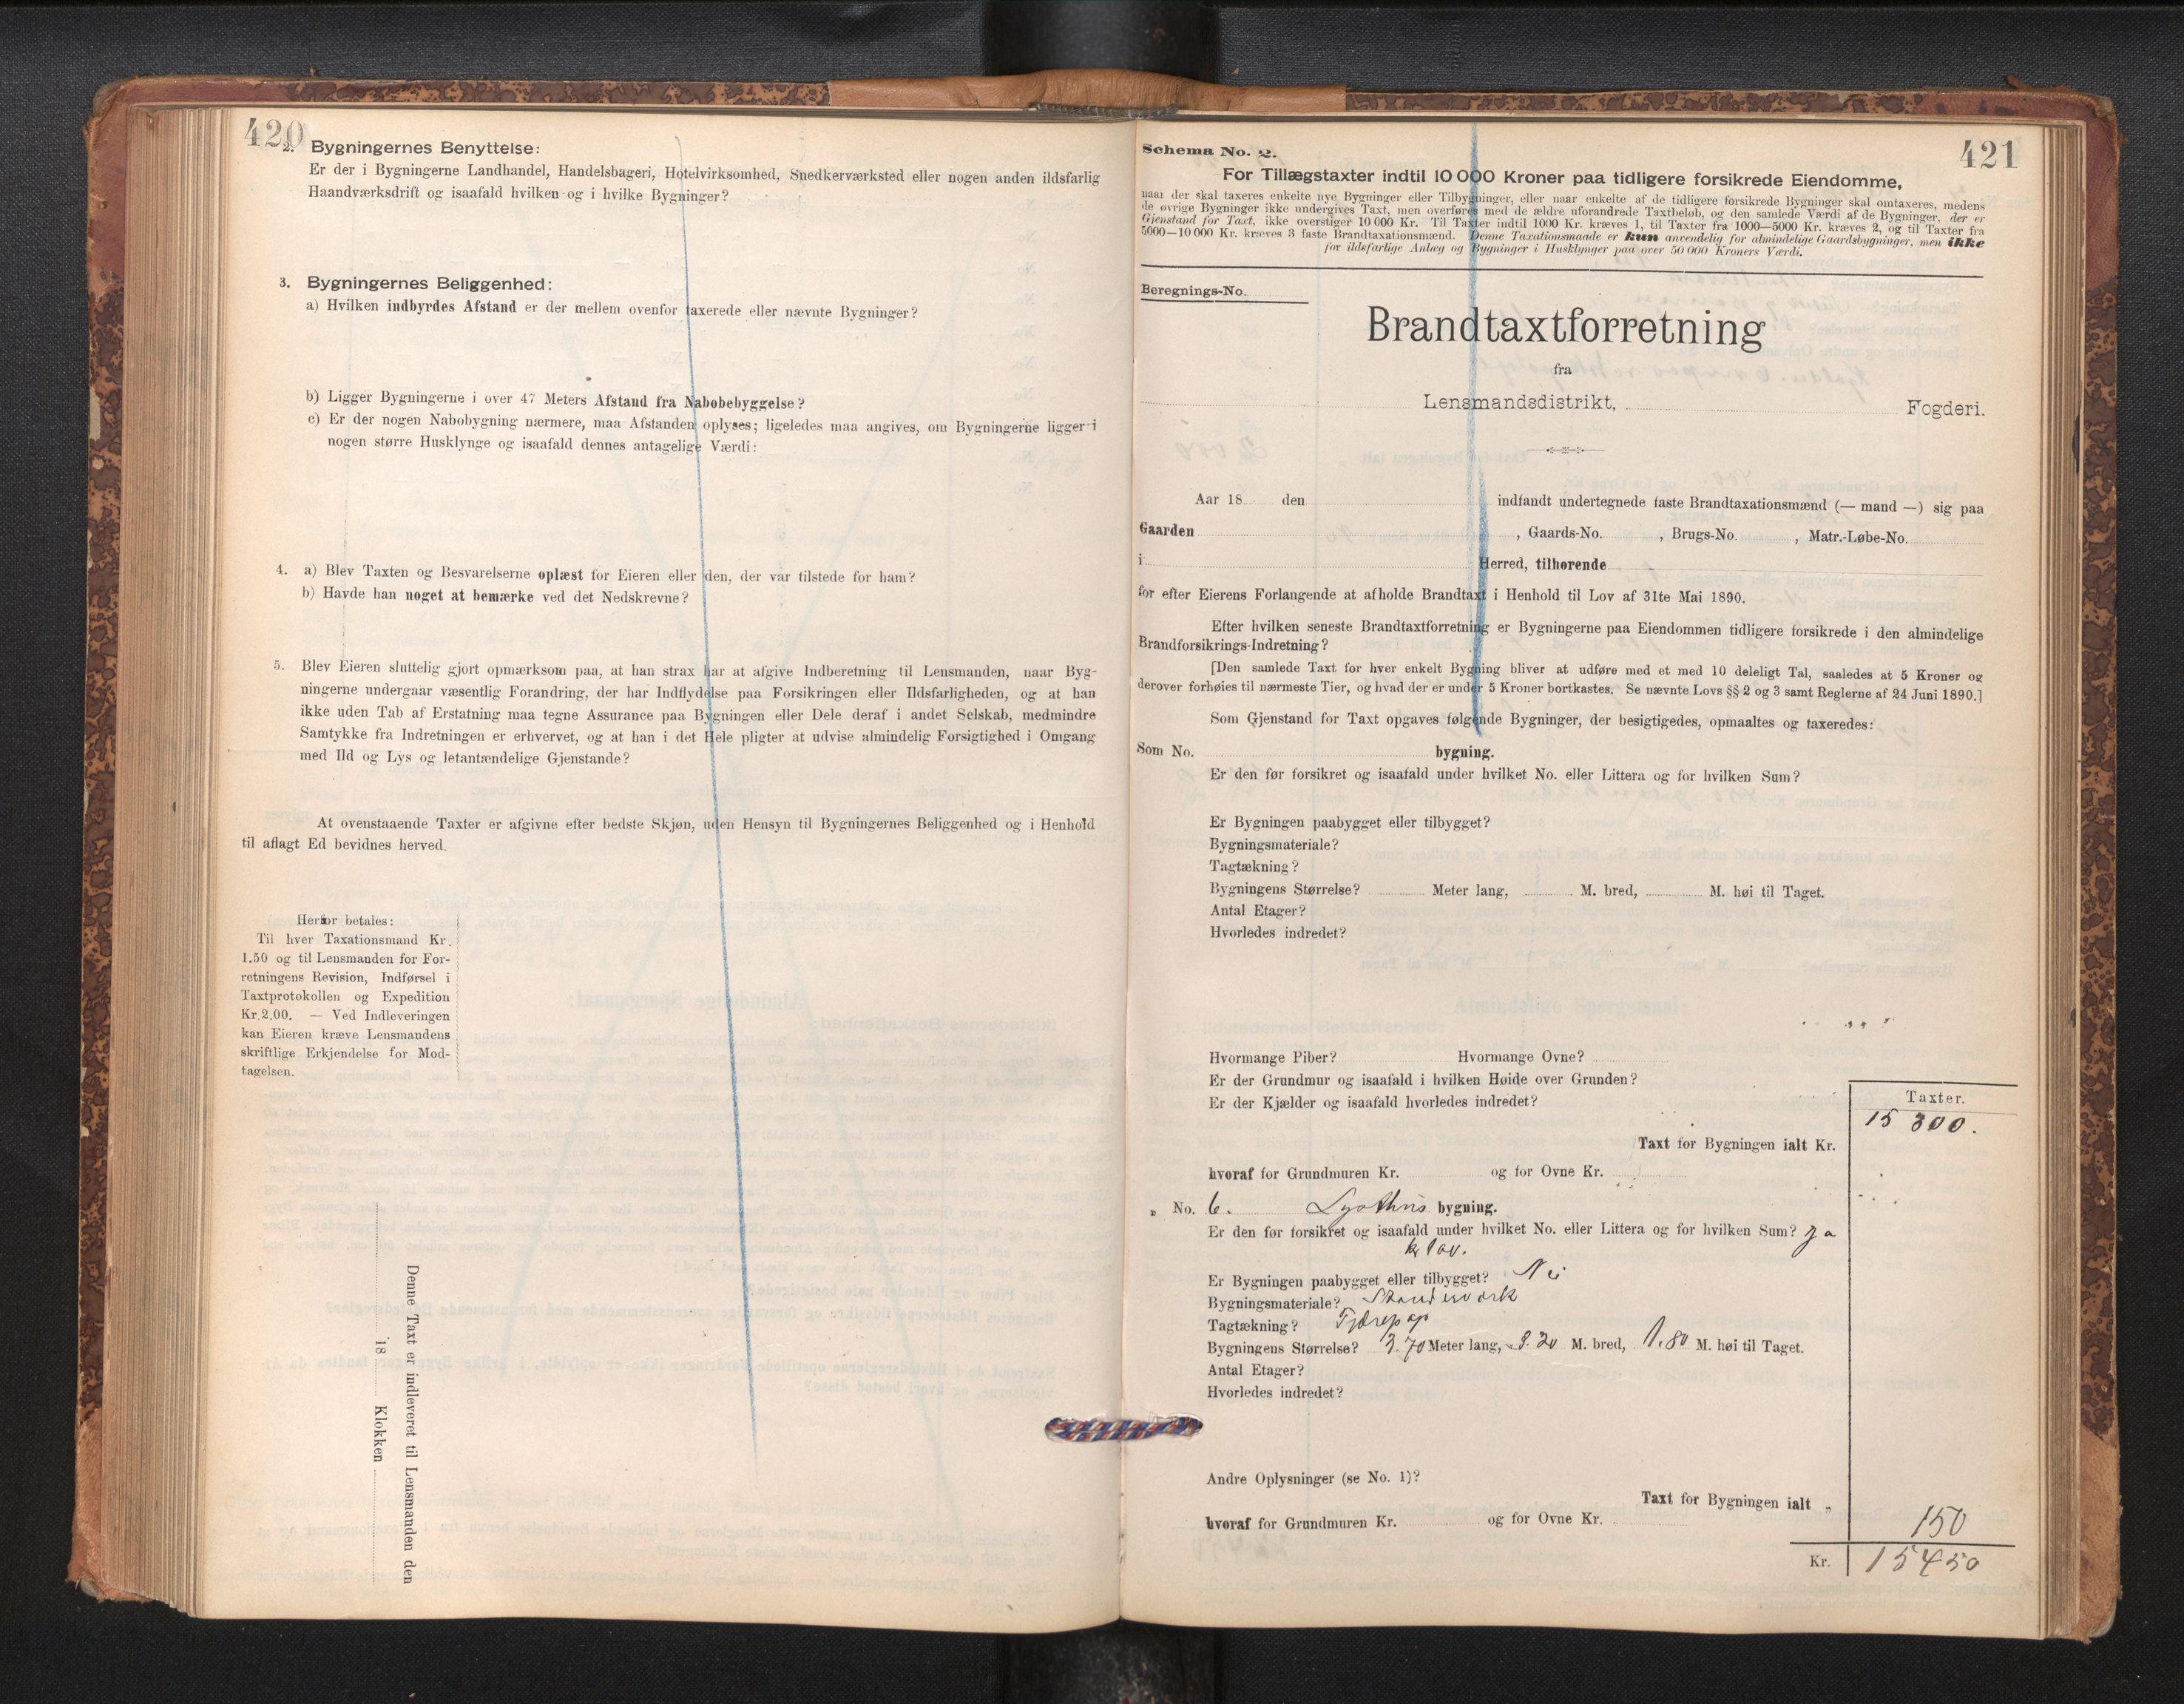 420
2. Bygningernes Benyttelse:
Er der i Bygningerne Landhandel, Handelsbageri, Hotelvirksomhed, Snedkerværksted eller nogen anden ildsfarlig
Haandværksdrift og isaafald hvilken og i hvilke Bygninger?
3. Bygningernes Beliggenhed:
a) Hvilken indbyrdes Afstand er der mellem ovenfor taxerede eller nævnte Bygninger?
b) Ligger Bygningerne i over 47 Meters Afstand fra Nabobebyggelse?
c) Er der nogen Nabobygning nærmere, maa Afstanden oplyses; ligeledes maa angives, om Bygningerne ligger i
nogen større Husklynge og isaafald dennes antagelige Værdi:
4. a) Blev Taxten og Besvarelserne oplæst for Eieren eller den, der var tilstede for ham?
b) Havde han noget at bemærke ved det Nedskrevne?
5. Blev Eieren sluttelig gjort opmærksom paa, at han strax har at afgive Indberetning til Lensmanden, naar Byg-
ningerne undergaar væsentlig Forandring, der har Indflydelse paa Forsikringen eller Ildsfarligheden, og at han
ikke uden Tab af Erstatning maa tegne Assurance paa Bygningen eller Dele deraf i andet Selskab, medmindre
Samtykke fra Indretningen er erhvervet, og at han i det Hele pligter at udvise almindelig Forsigtighed i Omgang
med Ild og Lys og letantændelige Gjenstande?
At ovenstaaende Taxter er afgivne efter bedste Skjøn, uden Hensyn til Bygningernes Beliggenhed og i Henhold
til aflagt Ed bevidnes herved.
Herfor betales:
Til hver Taxationsmand Kr.
1.50 og til Lensmanden for For-
retningens Revision, Indførsel i
Taxtprotokollen og Expedition
Kr. 2.00. — Ved Indleveringen
kan Eieren kræve Lensmandens
skriftlige Erkjendelse for Mod-
tagelsen.
Denne Taxt er indleveret til Lensmanden den
18 Klokken
421
Schema No. 2.
For Tillægstaxter indtil 10 000 Kroner paa tidligere forsikrede Eiendomme,
naar der skal taxeres enkelte nye Bygninger eller Tilbygninger, eller naar enkelte af de tidligere forsikrede Bygninger skal omtaxeres, medens
de øvrige Bygninger ikke undergives Taxt, men overføres med de ældre uforandrede Taxtbeløb, og den samlede Værdi af de Bygninger, der er
Gjenstand for Taxt, ikke overstiger 10 000 Kr. Til Taxter indtil 1000 Kr. kræves 1, til Taxter fra 1000—5000 Kr. kræves 2, og til Taxter fra
5000—10 000 Kr. kræves 3 faste Brandtaxationsmænd. Denne Taxationsmaade er kun anvendelig for almindelige Gaardsbygninger, men ikke
for ildsfarlige Anlæg og Bygninger i Husklynger paa over 50 000 Kroners Værdi.
Beregnings-No.
Brandtaxtforretning
fra
Lensmandsdistrikt, Fogderi.
Aar 18 den indfandt undertegnede faste Brandtaxationsmænd (— mand —) sig paa
Gaarden , Gaards-No. , Brugs-No. , Matr.-Løbe-No.
i Herred, tilhørende
for efter Eierens Forlangende at afholde Brandtaxt i Henhold til Lov af 31te Mai 1890.
Efter hvilken seneste Brandtaxtforretning er Bygningerne paa Eiendommen tidligere forsikrede i den almindelige
Brandforsikrings-Indretning?
[Den samlede Taxt for hver enkelt Bygning bliver at udføre med et med 10 deleligt Tal, saaledes at 5 Kroner og
derover forhøies til nærmeste Tier, og hvad der er under 5 Kroner bortkastes. Se nævnte Lovs §§ 2 og 3 samt Reglerne af 24 Juni 1890.]
Som Gjenstand for Taxt opgaves følgende Bygninger, der besigtigedes, opmaaltes og taxeredes:
Som No. bygning.
Er den før forsikret og isaafald under hvilket No. eller Littera og for hvilken Sum?
Er Bygningen paabygget eller tilbygget?
Bygningsmateriale?
Tagtækning?
Bygningens Størrelse? Meter lang, M. bred, M. høi til Taget.
Antal Etager?
Hvorledes indredet?
Hvormange Piber? Hvormange Ovne?
Er der Grundmur og isaafald i hvilken Høide over Grunden?
Er der Kjælder og isaafald hvorledes indredet?
Taxter.
15 300.
Taxt for Bygningen ialt Kr.
hvoraf for Grundmuren Kr. og for Ovne Kr.
„ No. 6. Lysthus bygning.
Er den før forsikret og isaafald under hvilket No. eller Littera og for hvilken Sum? Ja
Er Bygningen paabygget eller tilbygget? Nei
Bygningsmateriale? Standerværk
Tagtækning? Tjærepap
Bygningens Størrelse? 3.70 Meter lang, 3.20 M. bred, 1.80 M. høi til Taget.
Antal Etager?
Hvorledes indredet?
Andre Oplysninger (se No. 1)?
Taxt for Bygningen ialt „
150
hvoraf for Grundmuren Kr. og for Ovne Kr.
Kr. 15450